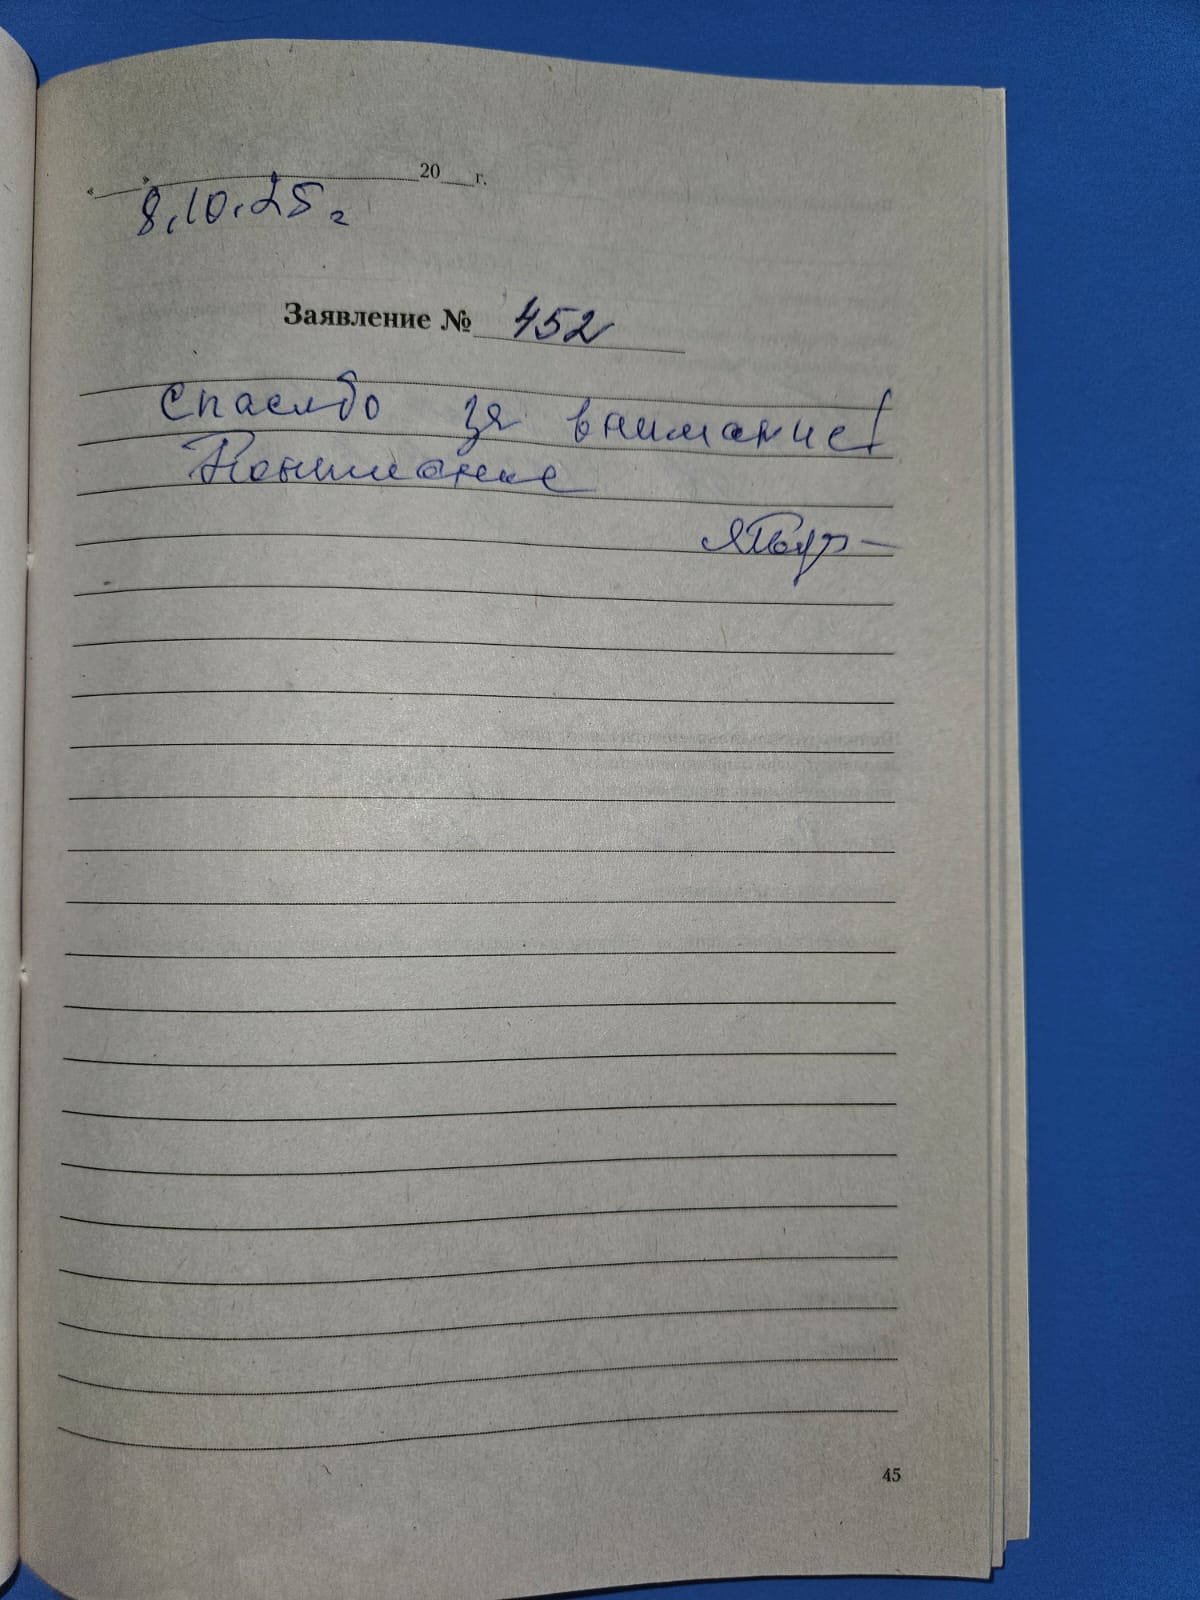 « » 20 г.
8.10.25 г
Заявление № 452
Спасибо за внимание!
Понимание
45